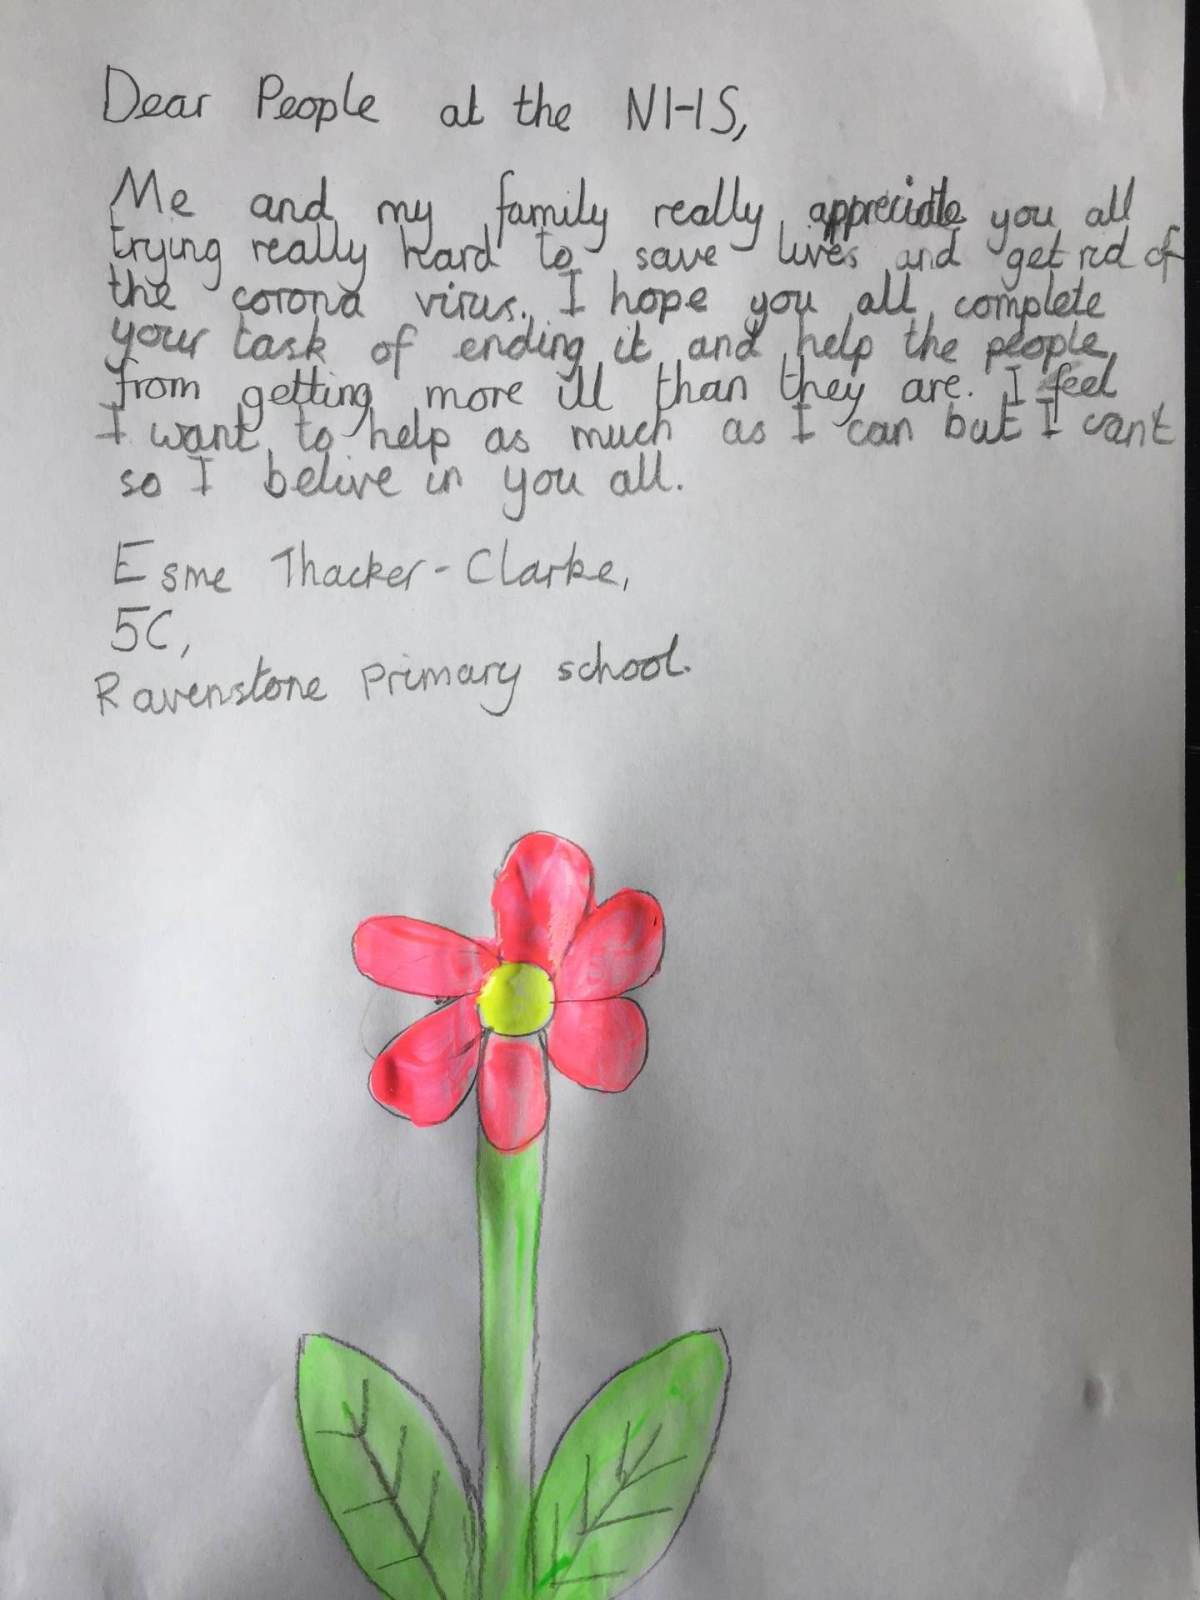 Dear People at the NHS,
Me and my family really appreciate you all
trying really hard to save lives and get rid of
the corona virus. I hope you all complete
your task of ending it and help the people
from getting more ill than they are. I feel
I want to help as much as I can but I cant
so I belive in you all.
Esme Thacker-Clarke,
5C,
Ravenstone Primary school.